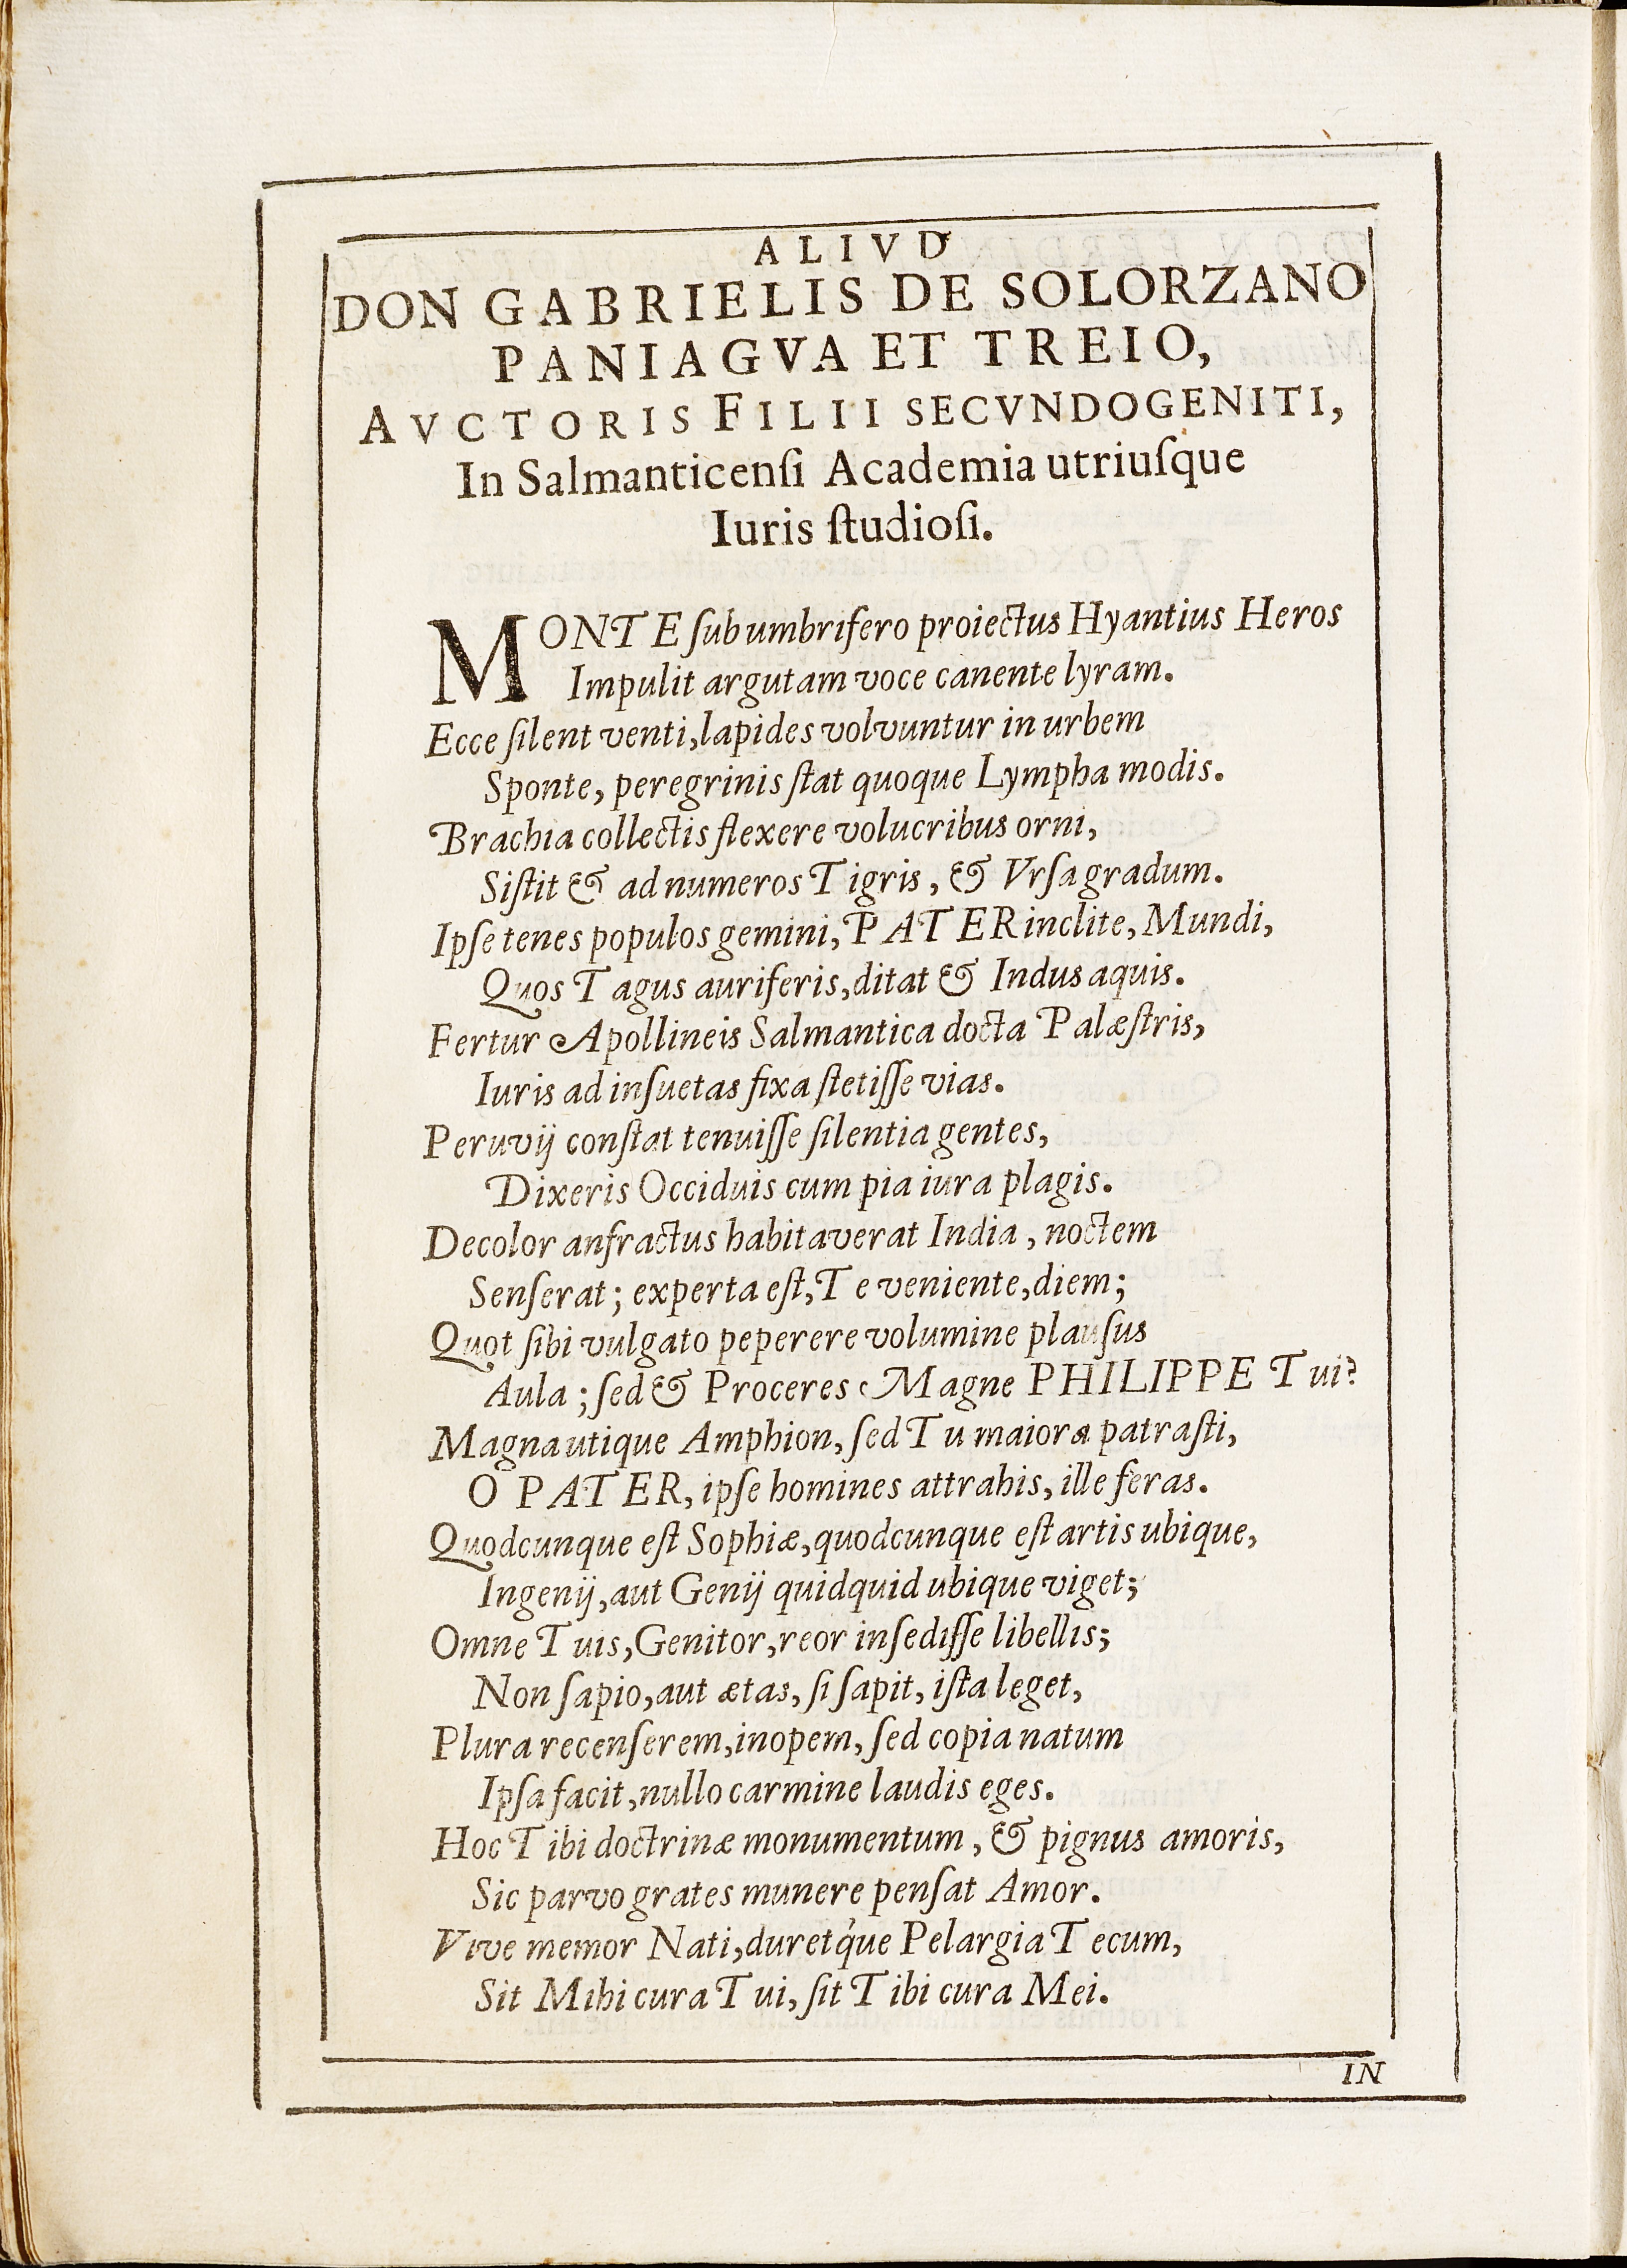 ALIVD
DON GABRIELIS DE SOLORZANO
PANIAGVA ET TREIO,
AVCTORIS FILII SECVNDOGENITI,
In Salmanticenſi Academia utriuſque
Iuris ſtudioſi.
MONTE ſub umbrifero proiectus Hyantius Heros
Impulit argutam voce canente lyram.
Ecce ſilent venti, lapides volvuntur in urbem
Sponte, peregrinis ſtat quoque Lympha modis.
Brachia collectis flexere volucribus orni,
Siſtit & ad numeros Tigris, & Vrſa gradum.
Ipſe tenes populos gemini, PATER inclite, Mundi,
Quos Tagus auriferis, ditat & Indus aquis.
Fertur Apollineis Salmantica docta Palæſtris,
Iuris ad inſuetas fixa ſtetiſſe vias.
Peruvij conſtat tenuiſſe ſilentia gentes,
Dixeris Occiduis cum pia iura plagis.
Decolor anfractus habitaverat India, noctem
Senſerat; experta eſt, Te veniente, diem;
Quot ſibi vulgato peperere volumine plauſus
Aula; ſed & Proceres Magne PHILIPPE Tui?
Magna utique Amphion, ſed Tu maiora patraſti,
O PATER, ipſe homines attrahis, ille feras.
Quodcunque eſt Sophiæ, quodcunque eſt artis ubique,
Ingenij, aut Genij quidquid ubique viget;
Omne Tuis, Genitor, reor inſediſſe libellis;
Non ſapio, aut ætas, ſi ſapit, iſta leget,
Plura recenſerem, inopem, ſed copia natum
Ipſa facit, nullo carmine laudis eges.
Hoc Tibi doctrinæ monumentum, & pignus amoris,
Sic parvo grates munere penſat Amor.
Vive memor Nati, duretq́ue Pelargia Tecum,
Sit Mihi cura Tui, ſit Tibi cura Mei.
IN